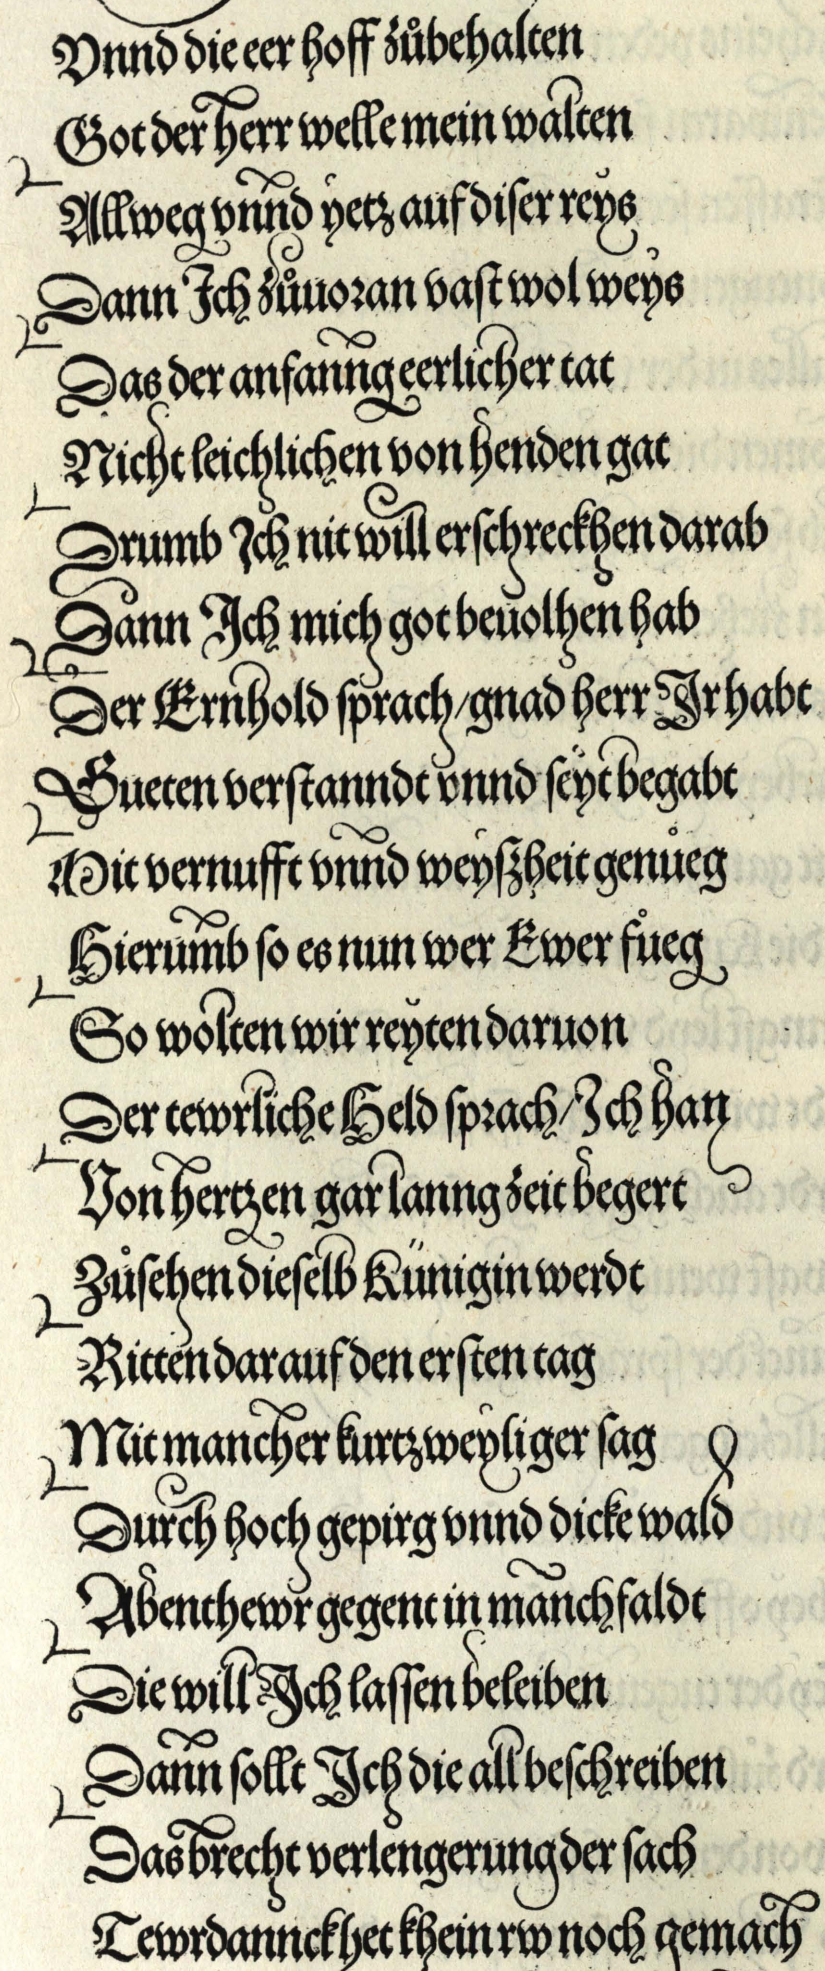 Vnnd die eer hoff zůbehalten
Got der herr welle mein walten
Allweg vnnd yetz auf diser reys
Dann Ich zůuoran vast wol weys
Das der anfanng eerlicher tat
Nicht leichlichen von henden gat
Drumb Ich nit will erschreckhen darab
Dann Ich mich got beuolhen hab
Der Ernhold sprach/gnad herr Ir habt
Gueten verstanndt vnnd seyt begabt
Mit vernufft vnnd weyßheit genůeg
Hierumb so es nun wer Ewer fůeg
So wolten wir reyten daruon
Der tewrliche Held sprach/Ich han
Von hertzen gar lanng zeit begert
Zůsehen dieselb Künigin werdt
Ritten darauf den ersten tag
Mit mancher kurtzweyliger sag
Durch hoch gepirg vnnd dicke wald
Abenthewr gegent in manchfaldt
Die will Ich lassen beleiben
Dann sollt Ich die all beschreiben
Das brecht verlengerung der sach
Tewrdannckh het khein rw noch gemach